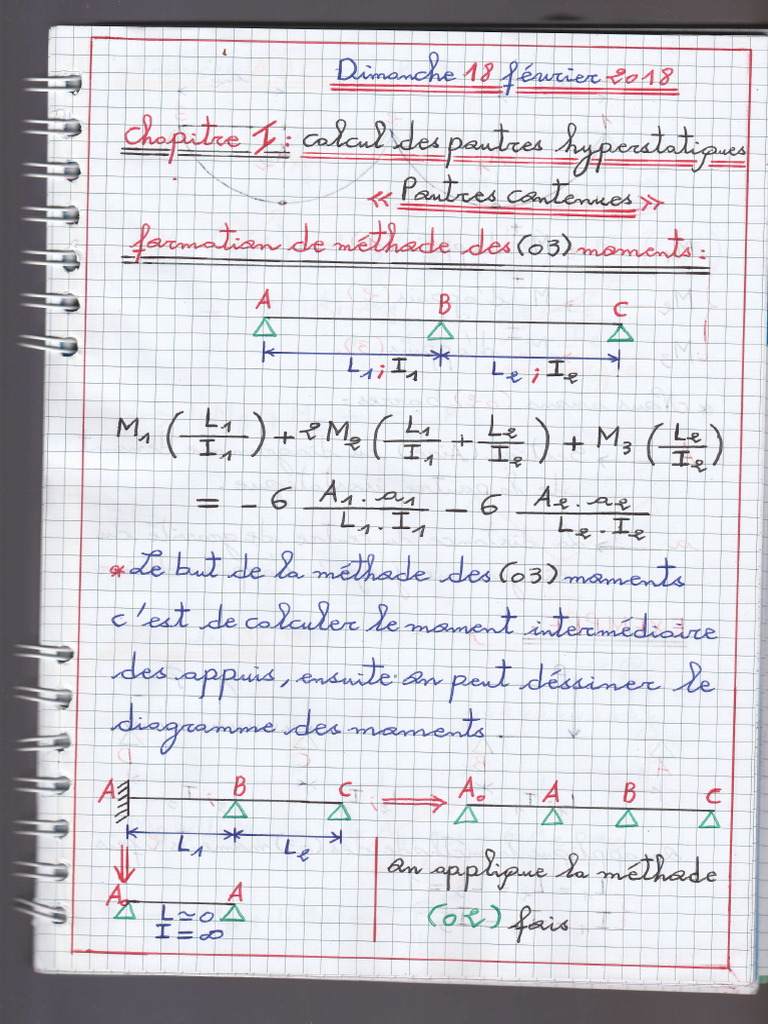 Dimanche 18 février 2018
Chapitre I : calcul des poutres hyperstatiques
« Poutres contenues »
formation de méthode des (03) moments :
A B C
L1 ; I1 L2 ; I2
M1 (L1/I1) + 2M2 (L1/I1 + L2/I2) + M3 (L2/I2)
= - 6 A1.a1/L1.I1 - 6 A2.a2/L2.I2
* Le but de la méthode des (03) moments
c'est de calculer le moment intermédiaire
des appuis, ensuite on peut déssiner le
diagramme des moments.
A B C ⇒ A0 A B C
L1 L2
on applique la méthode
(02) fois
A0 A
L ≃ 0
I = ∞